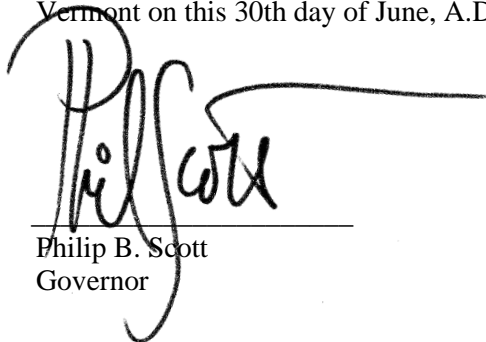 Vermont on this 30th day of June, A.D
Phil Scott
Philip B. Scott
Governor